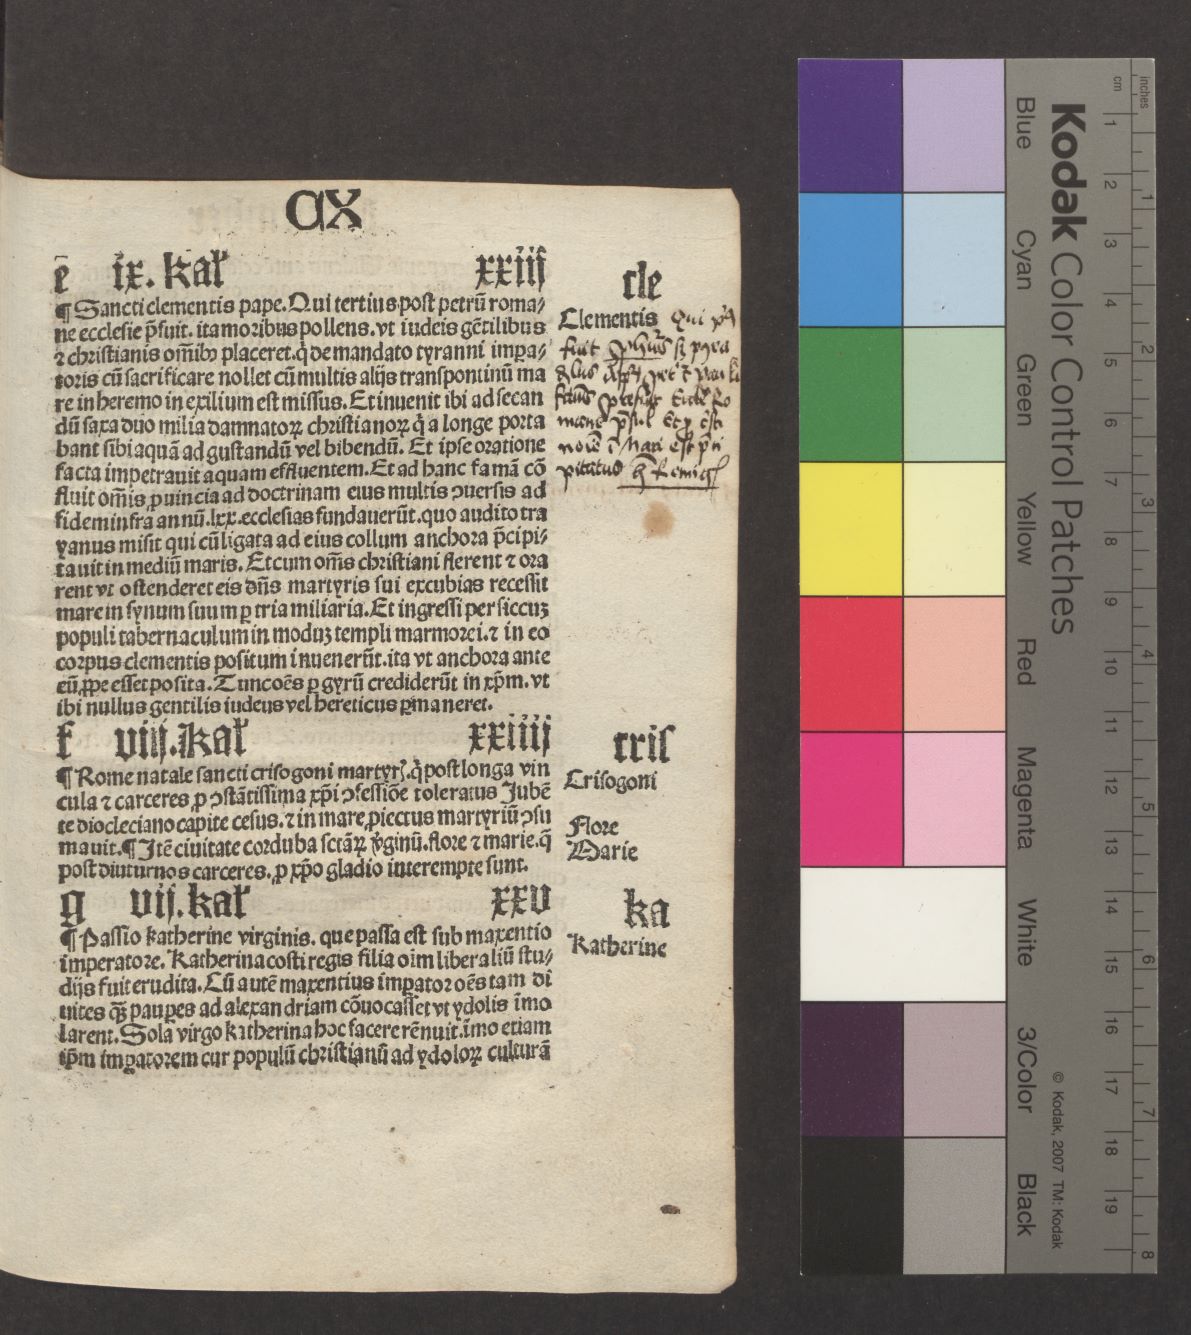 CX
e ix. kal' xxiij
¶ Sancti clementis pape. Qui tertius post petrū roma/
ne ecclesie p̄fuit. ita moribus pollens. vt iudeis gētilibus
⁊ christianis om̄ibꝰ placeret. q̇ de mandato tyranni impa/
toris cū sacrificare nollet cū multis alijs transpontinū ma
re in heremo in exilium est missus. Et inuenit ibi ad secan
dū saxa duo milia damnatoꝝ christianoꝝ q̇ a longe porta
bant sibi aquā ad gustandū vel bibendū. Et ipse oratione
facta impetrauit aquam effluentem. Et ad hanc famā cō
fluit om̄is ꝓuincia ad doctrinam eius multis ꝯuersis ad
fidem infra annū. lxx. ecclesias fundauerūt. quo audito tra
yanus misit qui cū ligata ad eius collum anchora p̄cipi/
tauit in mediū maris. Et cum om̄s christiani flerent ⁊ ora
rent vt ostenderet eis dn̄s martyris sui excubias recessit
mare in synum suum ꝑ tria miliaria. Et ingressi per siccuꝫ
populi tabernaculum in moduꝫ templi marmorei. ⁊ in eo
corpus clementis positum inuenerūt. ita vt anchora ante
eū ꝓpe esset posita. Tunc oēs ꝑ gyrū crediderūt in xp̄m. vt
ibi nullus gentilis iudeus vel hereticus ꝑmaneret.
f viij. kal' xxiiij
¶ Rome natale sancti crisogoni martyrꝭ. q̇ post longa vin
cula ⁊ carceres ꝓ ꝯstātissima xp̄i ꝯfessiōe toleratus Jubē
te diocleciano capite cesus. ⁊ in mare ꝓiectus martyriū ꝯsu
mauit. ¶ Itē ciuitate corduba sctāꝝ v̄ginū. flore ⁊ marie. q̄
post diuturnos carceres. ꝓ xp̄o gladio interempte sunt.
g vij. kal' xxv
¶ Passio katherine virginis. que passa est sub maxentio
imperatore. Katherina costi regis filia oim liberaliū stu/
dijs fuit erudita. Cū autē maxentius imꝑator oēs tam di
uites qꝫ pauꝑes ad alexandriam cōuocasset vt ydolis īmo
larent. Sola virgo katherina hoc facere rēnuit. īmo etiam
ip̄m imꝑatorem cur populū christianū ad ydoloꝝ culturā
cle
Clementis Qui
fuit
est
cris
Crisogoni
Flore
Marie
ka
Katherine
Kodak Color Control Patches
Blue
Cyan
Green
Yellow
Red
Magenta
White
3/Color
Black
© Kodak, 2007 TM: Kodak
cm 1 2 3 4 5 6 7 8 9 10 11 12 13 14 15 16 17 18 19
inches 1 2 3 4 5 6 7 8